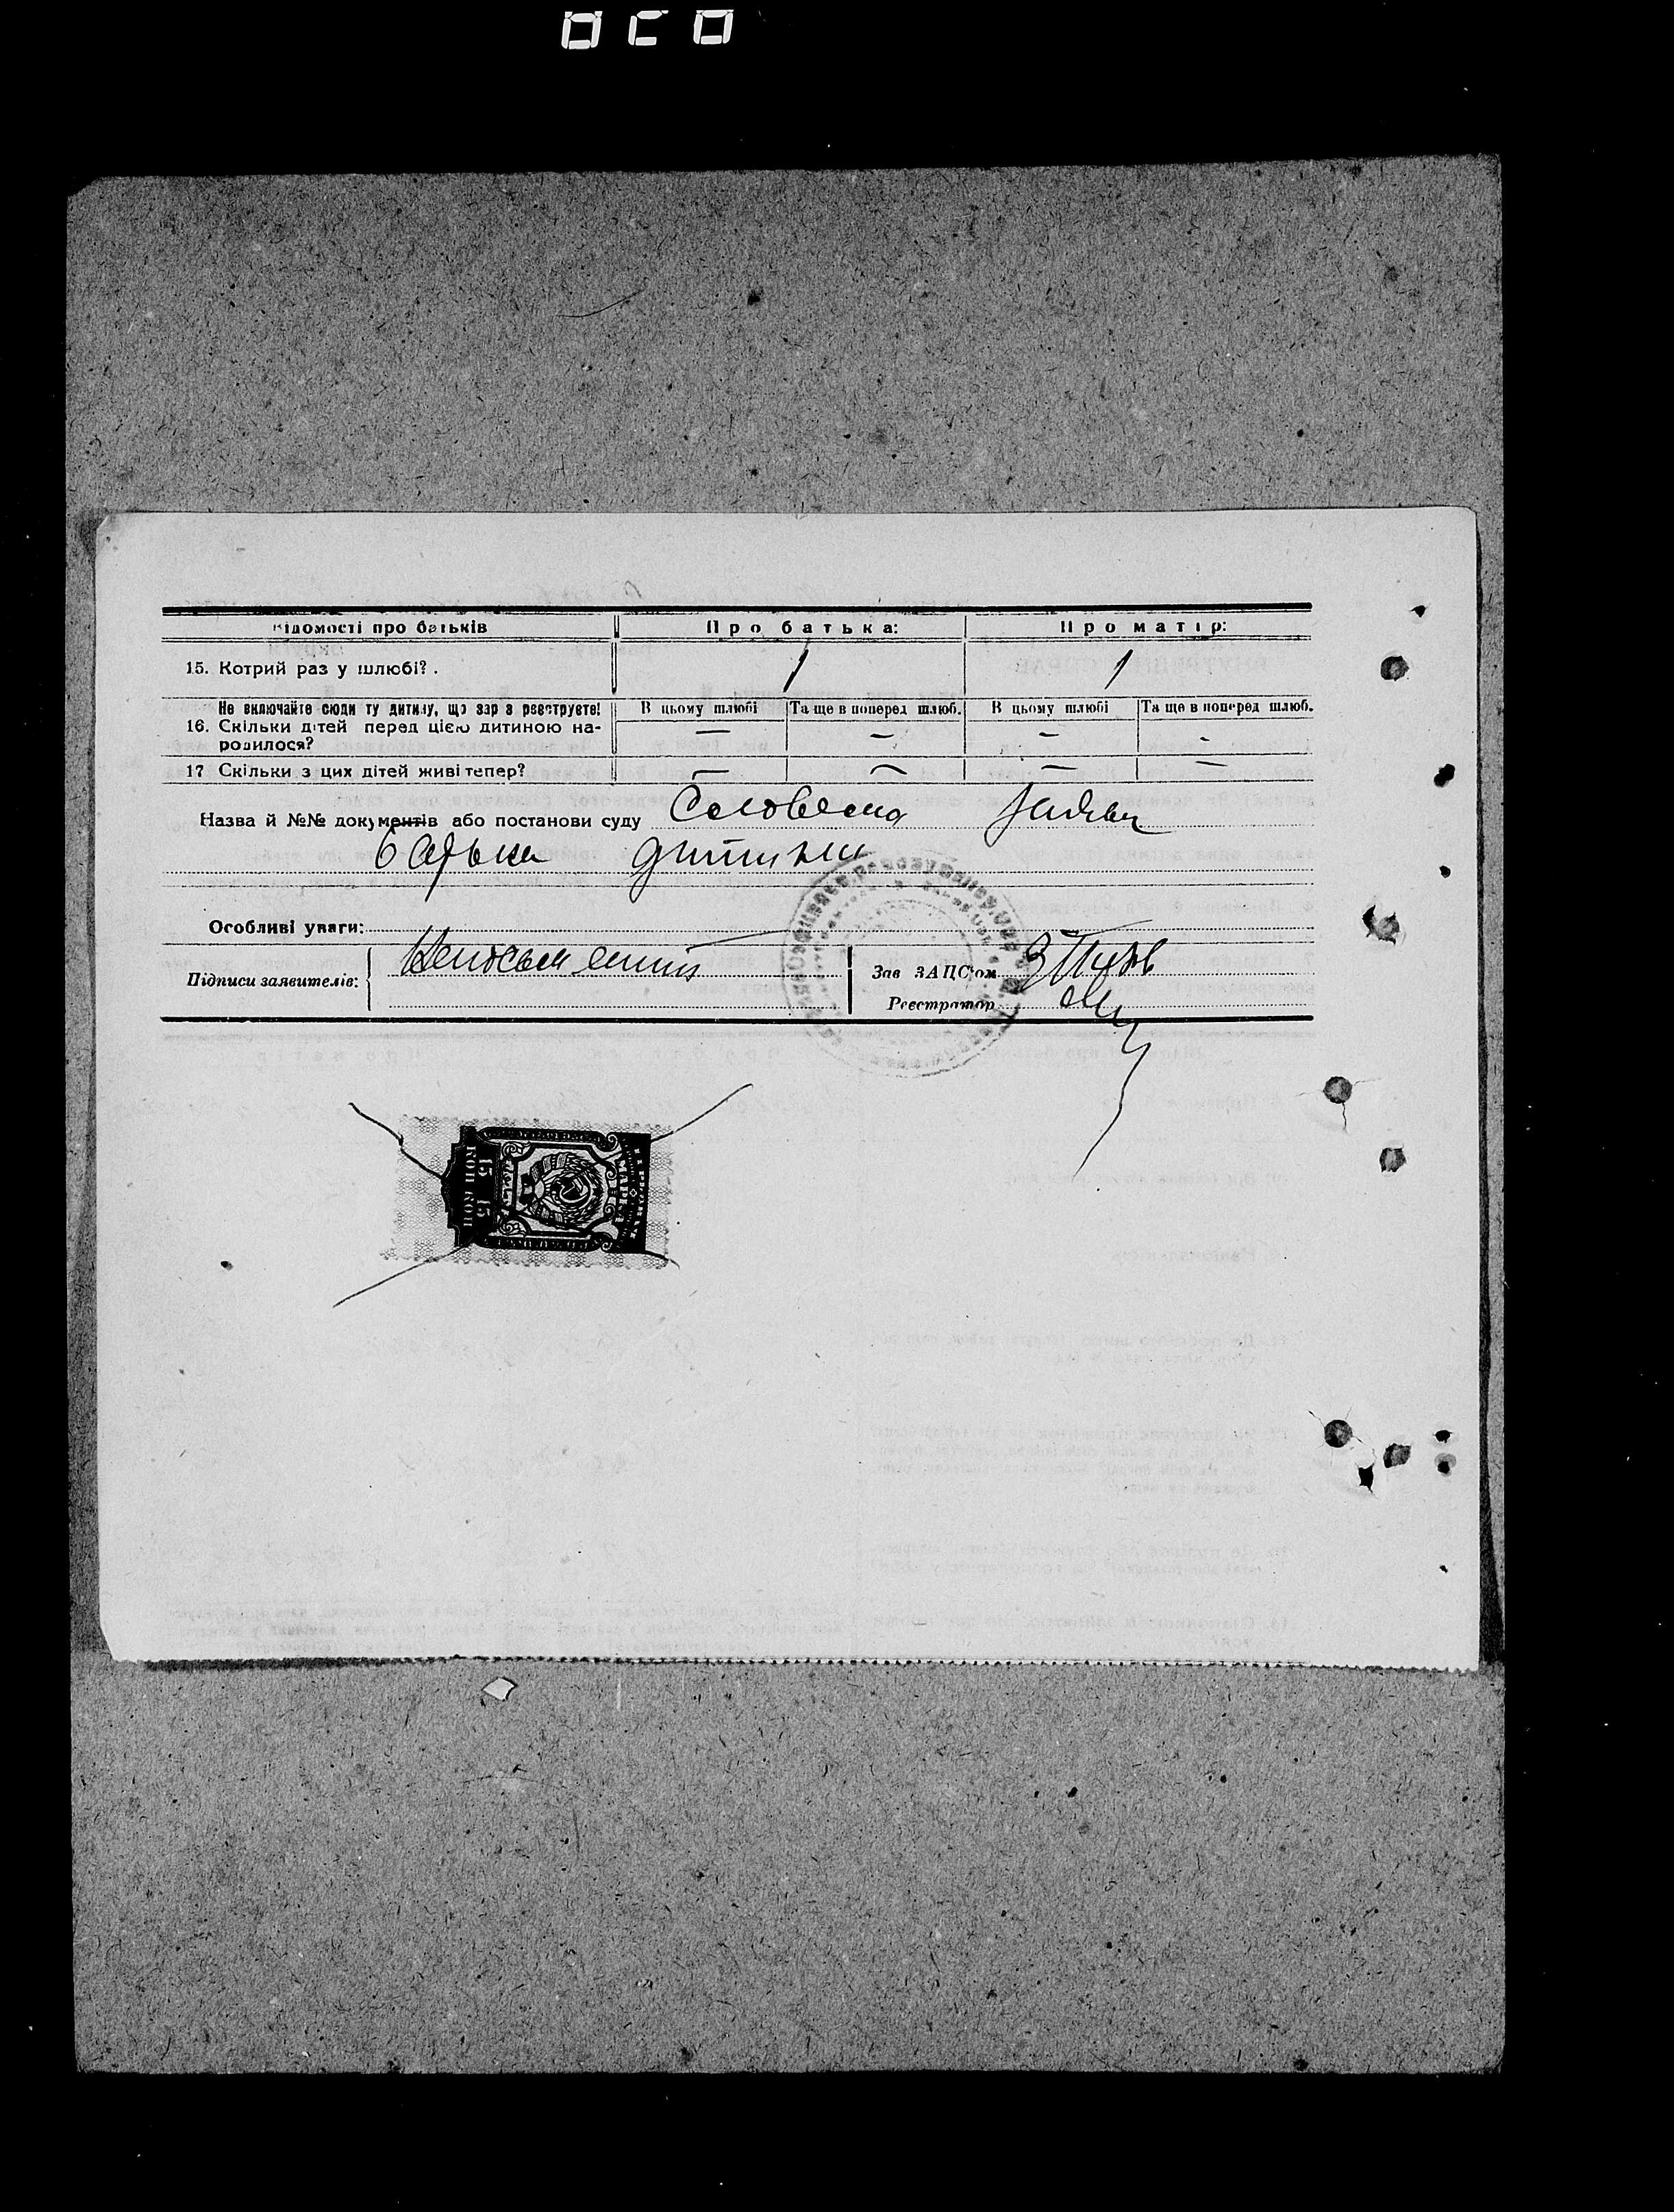 Відомості про батьків Про батька: Про матір:
15. Котрий раз у шлюбі? . 1 1
Не включайте сюди ту дитину, що зараз реєструєте! В цьому шлюбі Та ще в поперед шлюб. В цьому шлюбі Та ще в поперед шлюб.
16. Скільки дітей перед цією дитиною на- — — — -
родилося?
17 Скільки з цих дітей живі тепер? — — — —
Назва й №№ документів або постанови суду Словесна заява
батька дитини
Особливі уваги:
Підписи заявителів: Зав ЗАЦС'ом
Реєстратор
15 15
КОП КОП